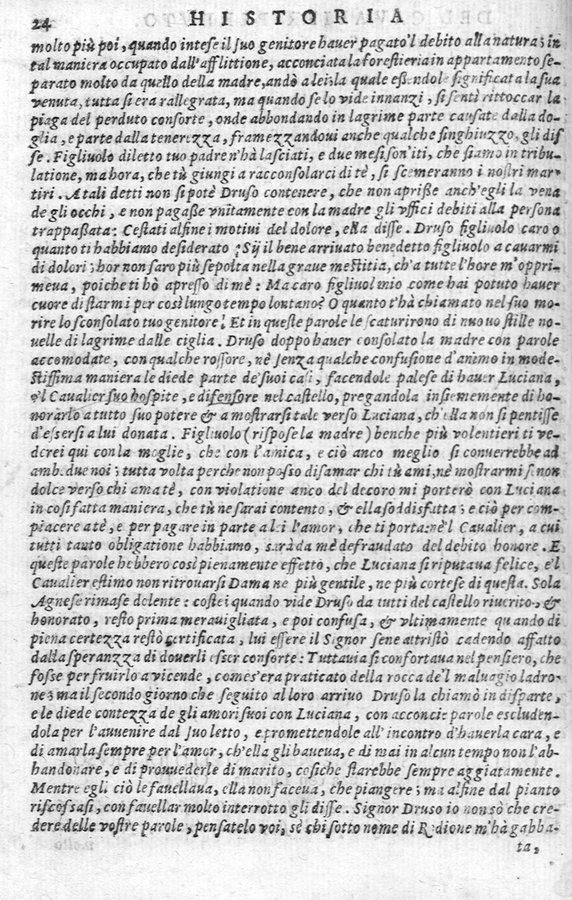 24 HISTORIA
molto più poi, quando intese il suo genitore haver pagato'l debito alla natura; in
tal maniera occupato dall'afflittione, acconciata la forestieria in appartamento se-
parato molto da quello della madre, andò a lei: la quale eßendole significata la sua
venuta, tutta si era rallegrata, ma quando se lo vide innanzi, si sentì rittoccar la
piaga del perduto consorte, onde abbondando in lagrime parte causate dalla do-
glia, e parte dalla tenerezza, framezzandovi anche qualche singhiuzzo, gli dis
se. Figliuolo diletto tuo padre n'hà lasciati, e due mesi son'iti, che siamo in tribu-
latione, ma hora, che tù giungi a racconsolarci di tè, si scemeranno i nostri mar-
tiri. A tali detti non si potè Druso contenere, che non aprisse anch'egli la vena
de gli occhi, e non pagaße vnitamente con la madre gli vffici debiti alla persona
trappaßata: Ceßati alfine i motivi del dolore, ella disse. Druso figliuolo caro o
quanto ti habbiamo desiderato? Sij il bene arrivato benedetto figliuolo a cavarmi
di dolori; hor non saro più sepolta nella grave mestitia, ch'a tutte l'hore m'oppri-
meva, poiche ti hò apresso di mè: Ma caro figliuol mio come hai potuto haver
cuore di starmi per così lungo tempo lontano? O quanto t'hà chiamato nel suo mo-
rire lo sconsolato tuo genitore! Et in queste parole le scaturirono di nuovo stille no-
velle di lagrime dalle ciglia. Druso doppo haver consolato la madre con parole
accomodate, con qualche rossore, nè senza qualche confusione d'animo in mode-
stissima maniera le diede parte de'suoi casi, facendole palese di haver Luciana,
e'l Cavalier suo hospite, e difensore nel castello, pregandola insiememente di ho-
norarlo a tutto suo potere & a mostrarsi tale verso Luciana, ch'ella non si pentisse
d'essersi a lui donata. Figliuolo (rispose la madre) benche più volentieri ti ve-
derei qui con la moglie, che con l'amica, e ciò anco meglio si converrebbe ad
amb.due noi; tutta volta perche non posso disamar chi tù ami, nè mostrarmi se non
dolce verso chi ama tè, con violatione anco del decoro mi porterò con Luciana
in cosi fatta maniera, che tù ne sarai contento, & ella soddisfatta; e ciò per com-
piacere a tè, e per pagare in parte a lei l'amor, che ti porta: nè'l Cavalier, a cui
tutti tanto obligatione habbiamo, sarà da mè defraudato del debito honore. E
queste parole hebbero così pienamente effetto, che Luciana si riputava felice, e'l
Cavalier estimo non ritrovarsi Dama ne più gentile, ne più cortese di questa. Sola
Agnese rimase dolente: costei quando vide Druso da tutti del castello riverito, &
honorato, resto prima meravigliata, e poi confusa, & vltimamente quando di
piena certezza restò certificata, lui essere il Signor sene attristò cadendo affatto
dalla speranzza di doverli esser consorte: Tuttavia si confortava nel pensiero, che
fosse per fruirlo a vicende, come s'era praticato della rocca de'l malvagio ladro-
ne; ma il secondo giorno che seguito al loro arrivo Druso la chiamò in disparte,
e le diede contezza de gli amori suoi con Luciana, con acconcie parole escluden-
dola per l'avvenire dal suo letto, e promettendole all'incontro d'haverla cara, e
di amarla sempre per l'amor, ch'ella gli haveva, e di mai in alcun tempo non l'ab-
bandonare, e di provvederle di marito, cosiche starebbe sempre aggiatamente.
Mentre egli ciò le favellava, ella non faceva, che piangere; ma alfine dal pianto
riscossasi, con favellar molto interrotto gli disse. Signor Druso io non sò che cre-
dere delle vostre parole, pensatelo voi, sè chi sotto nome di Rodione m'hà gabba-
ta,